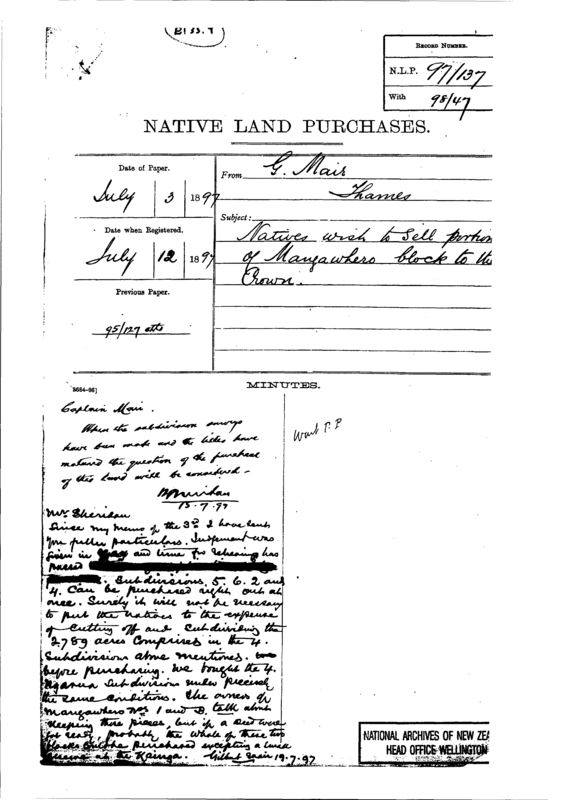 B133.7
RECORD NUMBER.
N.L.P. 97/137
With 98/47
NATIVE LAND PURCHASES.
Date of Paper.
July 3 1897
Date when Registered.
July 12 1897
Previous Paper.
95/127 atts
From G. Mair
Thames
Subject:
Natives wish to sell portion
of Mangawhero block to the
Crown.
MINUTES.
Captain Mair.
When the subdivision surveys
have been made and the titles have
matured the question of the purchase
of this land will be considered –
P Sheridan
13.7.97
Want P.P
Mr Sheridan
Since my memo of the 3rd I have sent
you fuller particulars. Judgement was
given in and time for rehearing has
passed
Subdivisions, 5. 6. 2 and
4. Can be purchased right out at
once. Surely it will not be necessary
to put the natives to the expense
of cutting off and subdividing the
2789 acres comprised in the 4.
Subdivisions above mentioned.
before purchasing. We bought the 4.
Ngarua Subdivisions under precisely
the same conditions. The owners of
Mangawhero Nos 1 and 3, talk about
keeping those pieces, but if a
probably the whole of these two
blocks purchased excepting a small
at the Kainga. Gilbert Mair 19.7.97
NATIONAL ARCHIVES OF NEW ZEA
HEAD OFFICE WELLINGTON